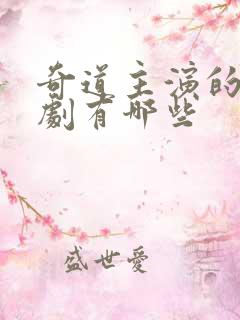 奇道主演的
劇有哪些
盛世愛